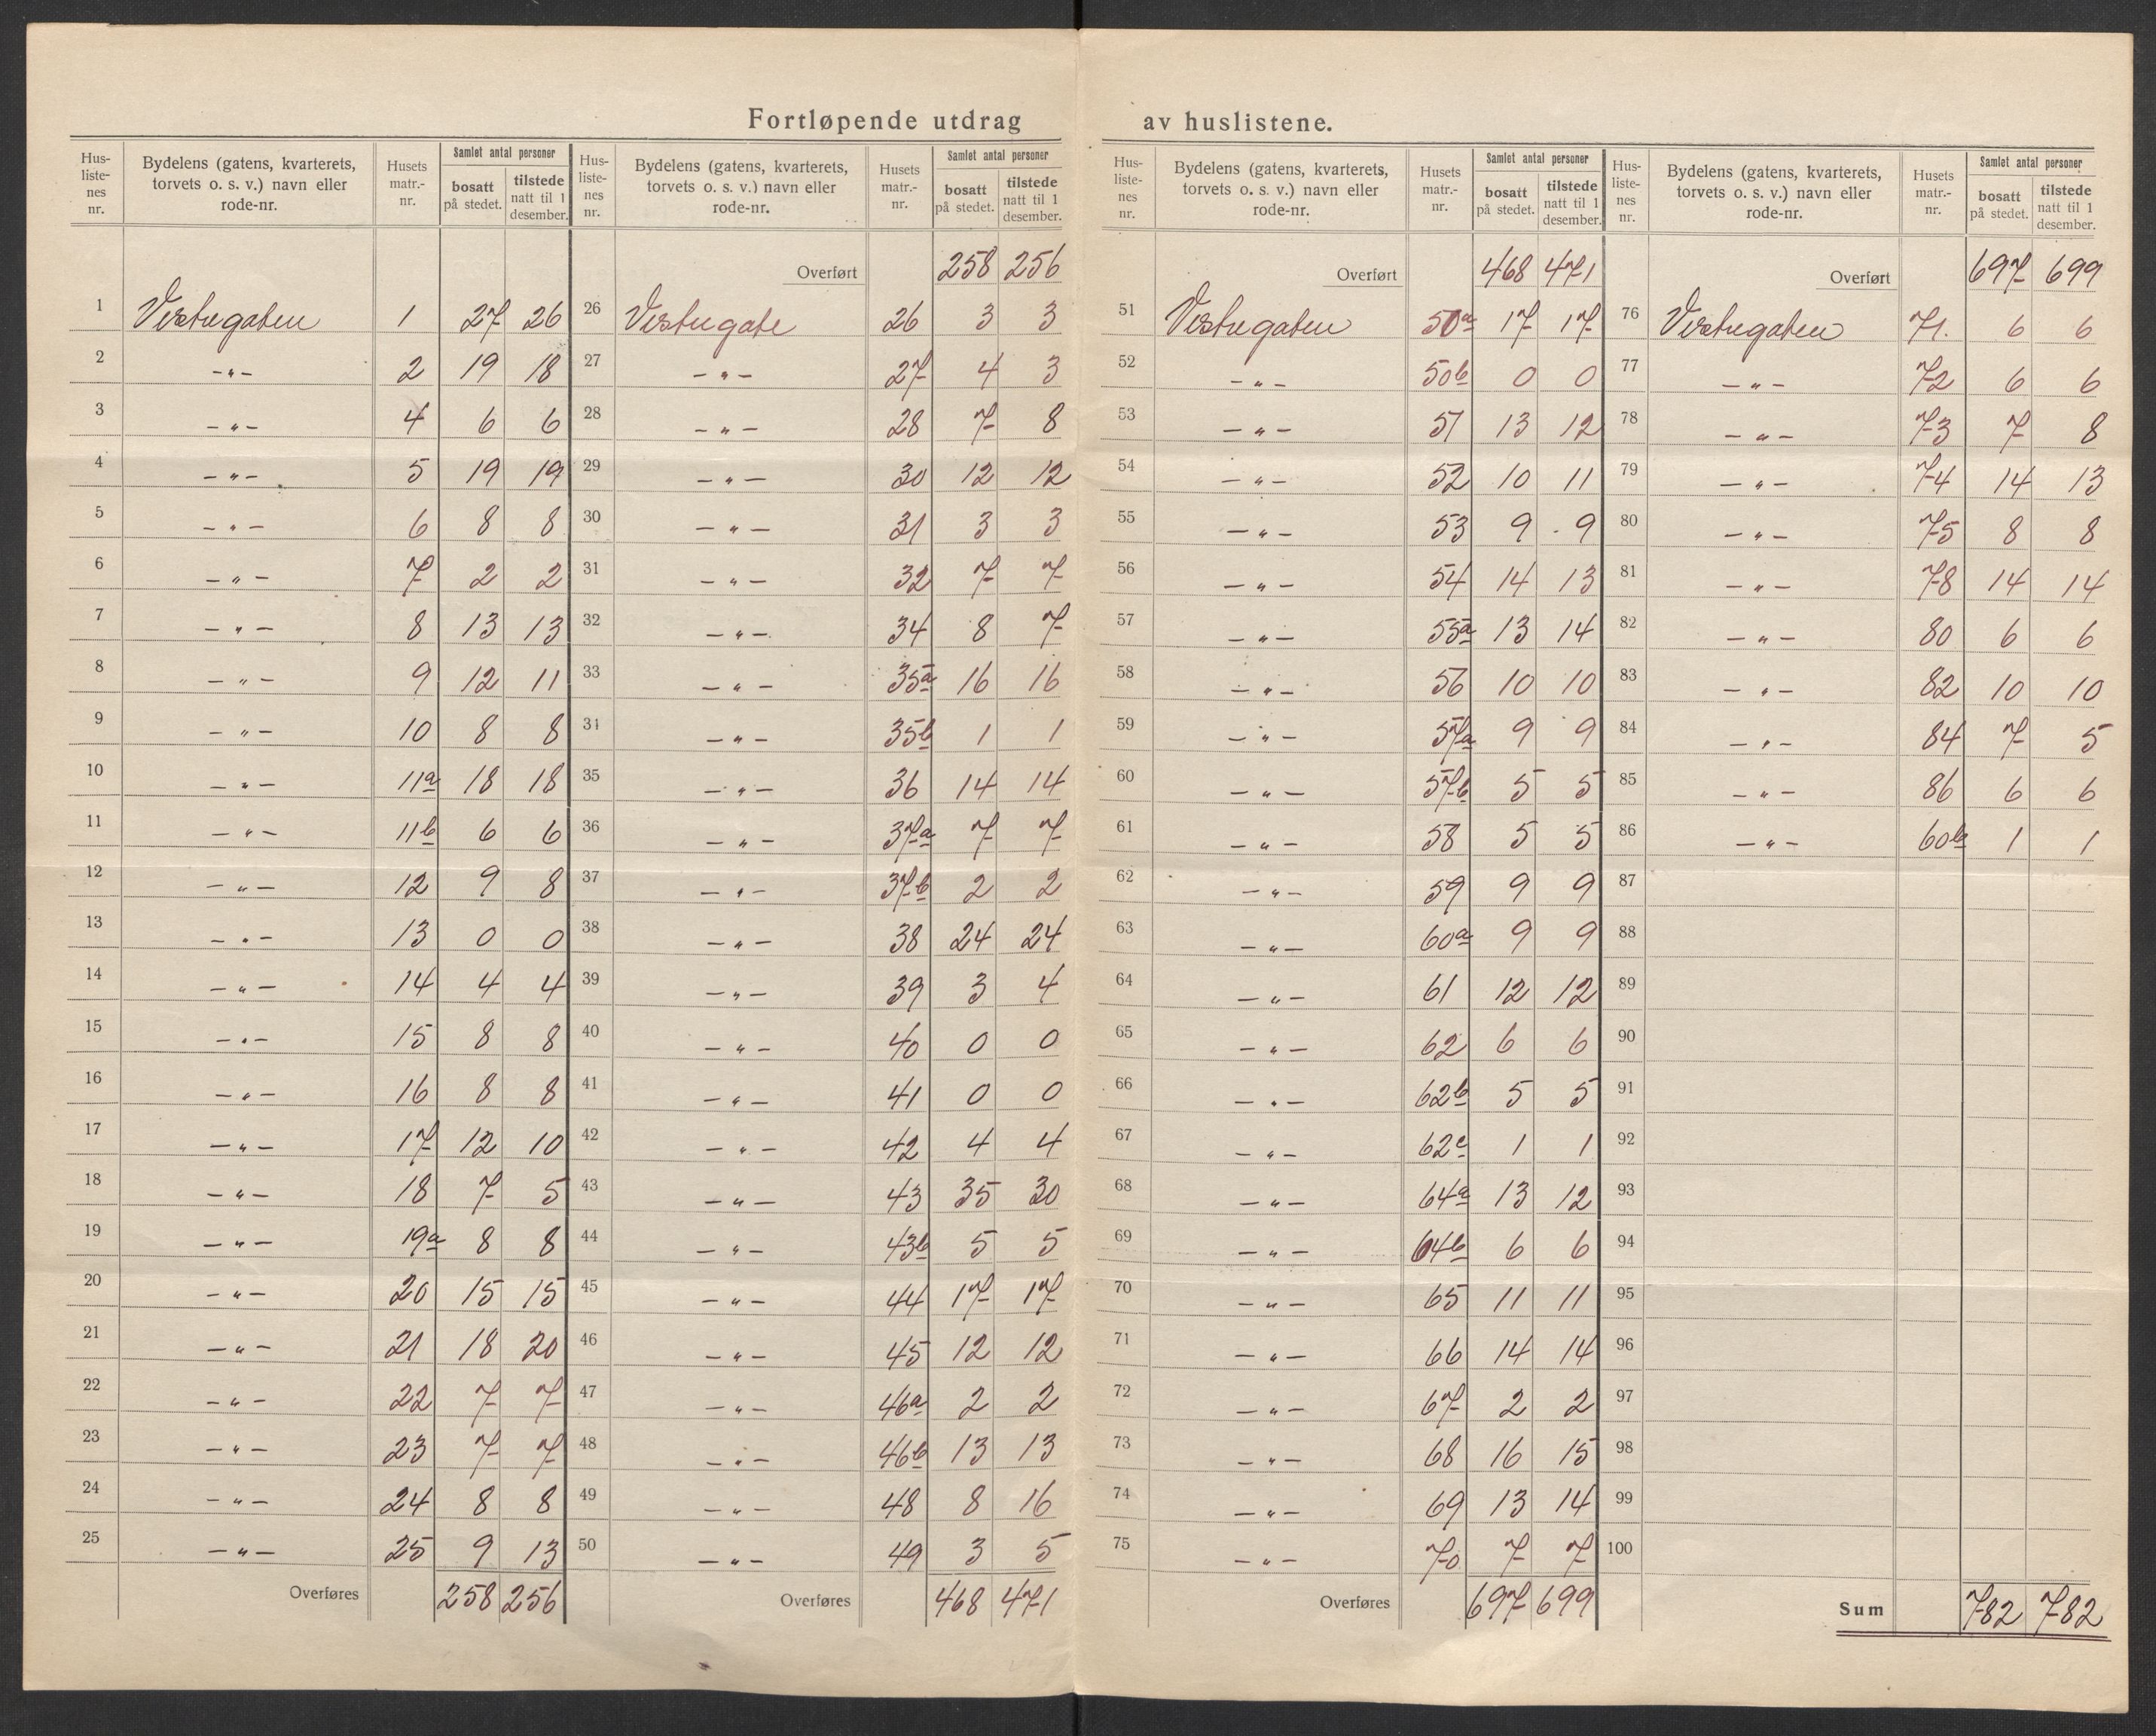 Fortløpende utdrag av huslistene.
Hus-listenes nr. | Bydelens (gatens, kvarterets, torvets o. s. v.) navn eller rode-nr. | Husets matr.-nr. | Samlet antal personer bosatt på stedet. | tilstede natt til 1 desember.
1 Vestregaten 1 27 26
2 -"- 2 19 18
3 -"- 4 6 6
4 -"- 5 19 19
5 -"- 6 8 8
6 -"- 7 2 2
7 -"- 8 13 13
8 -"- 9 12 11
9 -"- 10 8 8
10 -"- 11a 18 18
11 -"- 11b 6 6
12 -"- 12 9 8
13 -"- 13 0 0
14 -"- 14 4 4
15 -"- 15 8 8
16 -"- 16 8 8
17 -"- 17 12 10
18 -"- 18 7 5
19 -"- 19a 8 8
20 -"- 20 15 15
21 -"- 21 18 20
22 -"- 22 7 7
23 -"- 23 7 7
24 -"- 24 8 8
25 -"- 25 9 13
Overføres 258 256
Hus-listenes nr. | Bydelens (gatens, kvarterets, torvets o. s. v.) navn eller rode-nr. | Husets matr.-nr. | Samlet antal personer bosatt på stedet. | tilstede natt til 1 desember.
Overført 258 256
26 Vestregate 26 3 3
27 -"- 27 4 3
28 -"- 28 7 8
29 -"- 30 12 12
30 -"- 31 3 3
31 -"- 32 7 7
32 -"- 34 8 7
33 -"- 35a 16 16
34 -"- 35b 1 1
35 -"- 36 14 14
36 -"- 37a 7 7
37 -"- 37b 2 2
38 -"- 38 24 24
39 -"- 39 3 4
40 -"- 40 0 0
41 -"- 41 0 0
42 -"- 42 4 4
43 -"- 43 35 30
44 -"- 43b 5 5
45 -"- 44 17 17
46 -"- 45 12 12
47 -"- 46a 2 2
48 -"- 46b 13 13
49 -"- 48 8 16
50 -"- 49 3 5
Overføres 468 471
Hus-listenes nr. | Bydelens (gatens, kvarterets, torvets o. s. v.) navn eller rode-nr. | Husets matr.-nr. | Samlet antal personer bosatt på stedet. | tilstede natt til 1 desember.
Overført 468 471
51 Vestregaten 50a 17 17
52 -"- 50b 0 0
53 -"- 51 13 12
54 -"- 52 10 11
55 -"- 53 9 9
56 -"- 54 14 13
57 -"- 55a 13 14
58 -"- 56 10 10
59 -"- 57a 9 9
60 -"- 57b 5 5
61 -"- 58 5 5
62 -"- 59 9 9
63 -"- 60a 9 9
64 -"- 61 12 12
65 -"- 62 6 6
66 -"- 62b 5 5
67 -"- 62c 1 1
68 -"- 64a 13 12
69 -"- 64b 6 6
70 -"- 65 11 11
71 -"- 66 14 14
72 -"- 67 2 2
73 -"- 68 16 15
74 -"- 69 13 14
75 -"- 70 7 7
Overføres 697 699
Hus-listenes nr. | Bydelens (gatens, kvarterets, torvets o. s. v.) navn eller rode-nr. | Husets matr.-nr. | Samlet antal personer bosatt på stedet. | tilstede natt til 1 desember.
Overført 697 699
76 Vestregaten 71. 6 6
77 -"- 72 6 6
78 -"- 73 7 8
79 -"- 74 14 13
80 -"- 75 8 8
81 -"- 78 14 14
82 -"- 80 6 6
83 -"- 82 10 10
84 -"- 84 7 5
85 -"- 86 6 6
86 -"- 60b 1 1
87
88
89
90
91
92
93
94
95
96
97
98
99
100
Sum 782 782